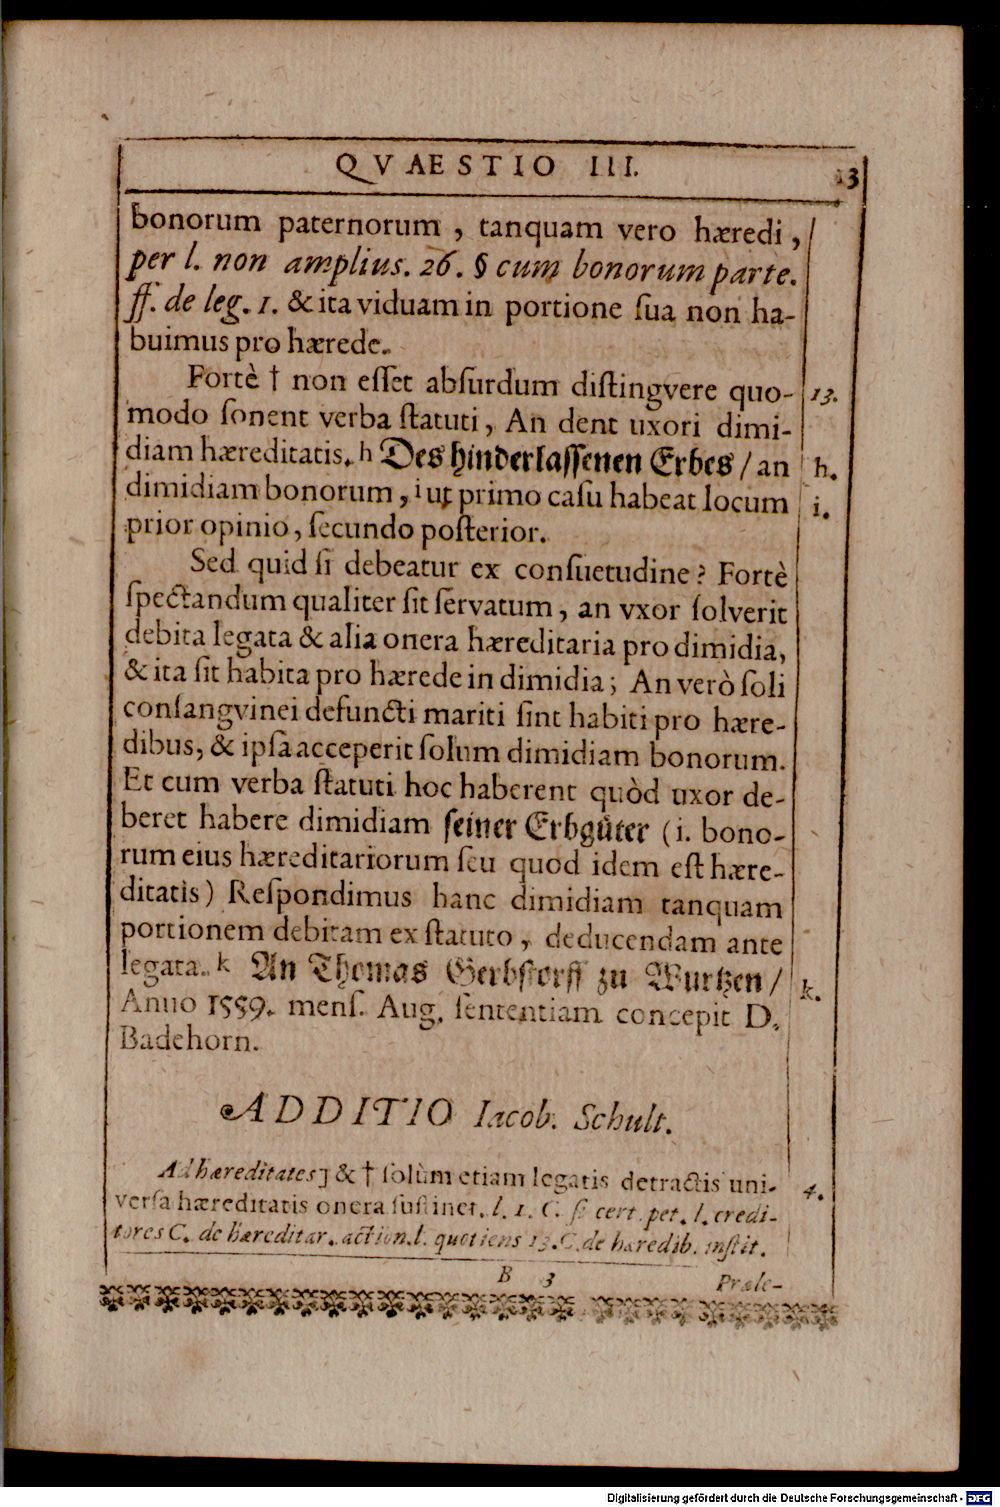 QVAESTIO III. 13
bonorum paternorum, tanquam vero hæredi,
per l. non amplius. 26. § cum bonorum parte.
ff. de leg. 1. & ita viduam in portione ſua non ha-
buimus pro hærede.
Fortè † non eſſet abſurdum diſtingvere quo- 13.
modo ſonent verba ſtatuti, An dent uxori dimi-
diam hæreditatis. h Des hinderlaſſenen Erbes / an h.
dimidiam bonorum, i ut primo caſu habeat locum i.
prior opinio, ſecundo poſterior.
Sed quid ſi debeatur ex conſuetudine? Fortè
ſpectandum qualiter ſit ſervatum, an vxor ſolverit
debita legata & alia onera hæreditaria pro dimidia,
& ita ſit habita pro hærede in dimidia; An verò ſoli
conſangvinei defuncti mariti ſint habiti pro hære-
dibus, & ipſa acceperit ſolum dimidiam bonorum.
Et cum verba ſtatuti hoc haberent quòd uxor de-
beret habere dimidiam ſeiner Erbgüter (i. bono-
rum eius hæreditariorum ſeu quod idem eſt hære-
ditatis) Reſpondimus hanc dimidiam tanquam
portionem debitam ex ſtatuto, deducendam ante
legata. k An Thomas Gerbſtorff zu Wurtzen / k.
Anno 1559. menſ. Aug. ſententiam concepit D.
Badehorn.
ADDITIO Iacob. Schult.
Ad hæreditates] & † ſolùm etiam legatis detractis uni- 4.
verſa hæreditatis onera ſuſtinet. l. 1. C. ſi cert. pet. l. credi-
tores C. de hæreditar. action. l. quotiens 13. C. de hæredib. inſtit.
B 3 Præle-
Digitalisierung gefördert durch die Deutsche Forschungsgemeinschaft - DFG